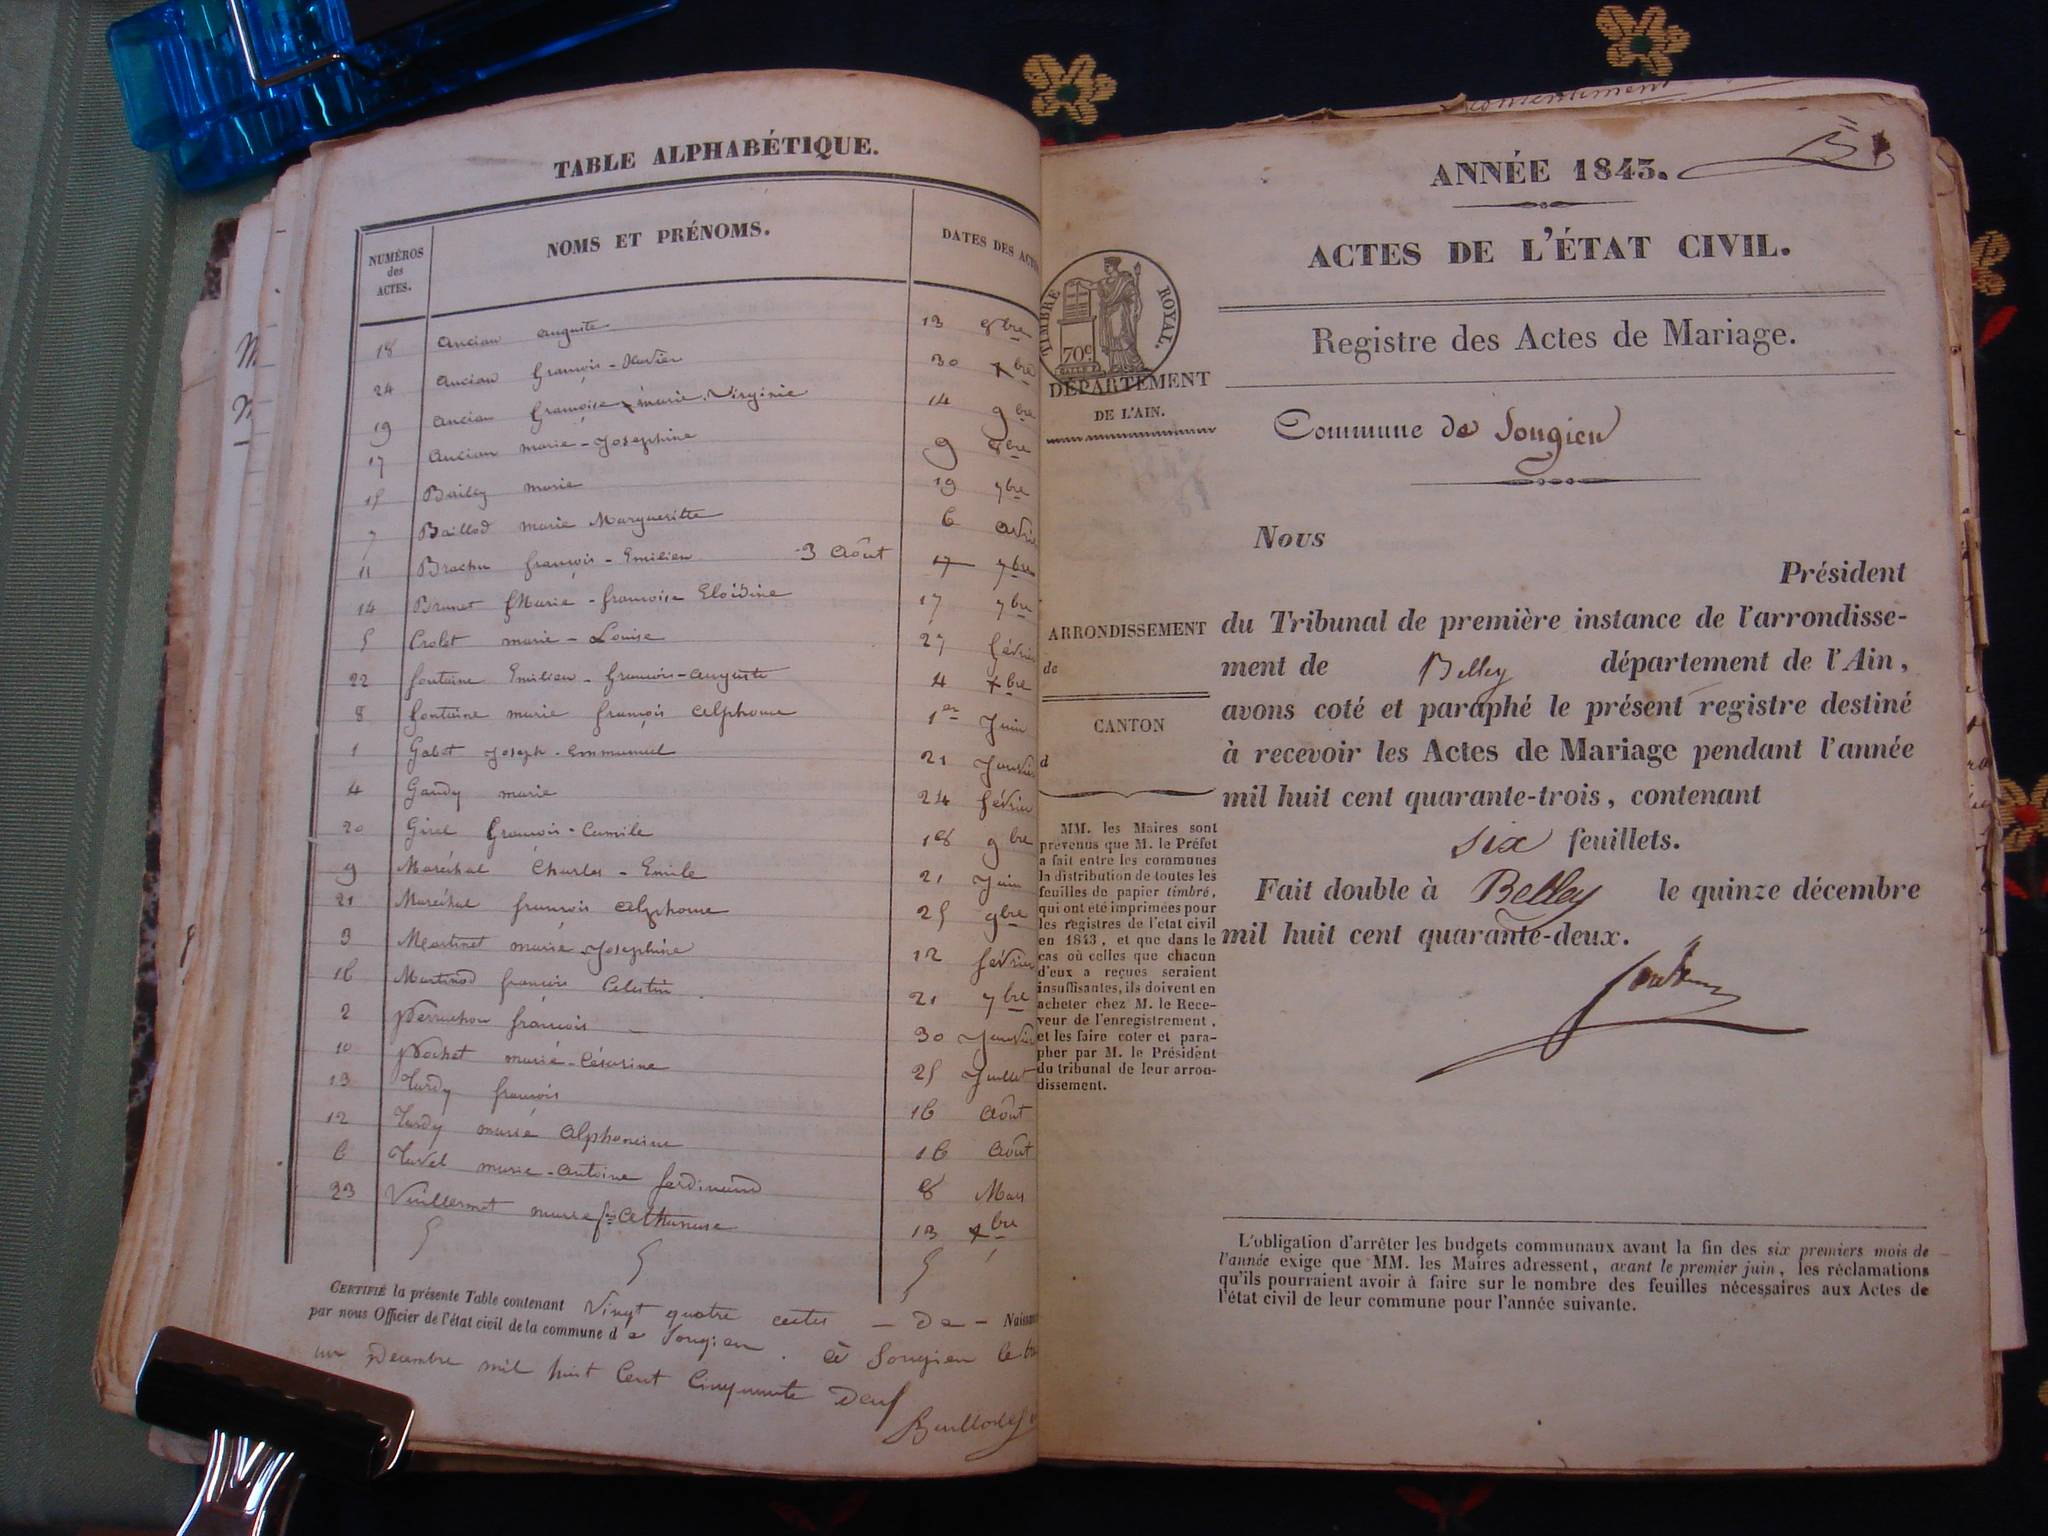 TABLE ALPHABÉTIQUE.
NUMÉROS des ACTES. NOMS ET PRÉNOMS. DATES DES ACT
18 ancian auguste 13 8bre
24 ancian françois-Xavier 30 xbre
19 ancian françoise marie Virginie 14 9bre
17 ancian marie-Josephine 9 8bre
15 Bailly marie 19 7bre
7 Baillod marie Margueritte 6 avri
11 Brachu françois-Emilien 3 Août 17 7bre
14 Brunet Marie-françoise Eloidine 17 7bre
5 Crolet marie-Louise 27 février
22 fontaine Emilien-françois-auguste 4 xbre
8 fontaine marie françois alphonse 1er Juin
1 Gabet Joseph-Emmanuel 21 Janvier
4 Gaudy marie 24 février
20 Girel françois-Camile 18 9bre
9 Maréchal Charles-Emile 21 Juin
21 Maréchal françois alphonse 25 9bre
3 Martinet marie Josephine 12 février
16 Martinod françois Celestin 21 7bre
2 perruchon françois 30 Janvier
10 pochet marie-Césarine 25 Juillet
13 Tardy françois 16 août
12 Tardy marie alphonsine 16 Août
6 Tavel marie-antoine ferdinand 8 Mars
23 Vuillermet marie 13 xbre
CERTIFIÉ la présente Table contenant Vingt quatre actes - de - Naissan
par nous Officier de l'état civil de la commune de Songieu. à Songieu le
un Décembre mil huit Cent Cinquante Deux
consentiment
ANNÉE 1843.
ACTES DE L'ÉTAT CIVIL.
Registre des Actes de Mariage.
TIMBRE ROYAL.
70c
DÉPARTEMENT
DE L'AIN.
Commune de Songieu
Nous
Président
ARRONDISSEMENT
de
CANTON
d
du Tribunal de première instance de l'arrondisse-
ment de Belley département de l'Ain,
avons coté et paraphé le présent registre destiné
à recevoir les Actes de Mariage pendant l'année
mil huit cent quarante-trois, contenant
six feuillets.
Fait double à Belley le quinze décembre
mil huit cent quarante-deux.
MM. les Maires sont
prévenus que M. le Préfet
a fait entre les communes
la distribution de toutes les
feuilles de papier timbré,
qui ont été imprimées pour
les registres de l'état civil
en 1843, et que dans le
cas où celles que chacun
d'eux a reçues seraient
insuffisantes, ils doivent en
acheter chez M. le Rece-
veur de l'enregistrement,
et les faire coter et para-
pher par M. le Président
du tribunal de leur arron-
dissement.
L'obligation d'arrêter les budgets communaux avant la fin des six premiers mois de
l'année exige que MM. les Maires adressent, avant le premier juin, les réclamations
qu'ils pourraient avoir à faire sur le nombre des feuilles nécessaires aux Actes de
l'état civil de leur commune pour l'année suivante.